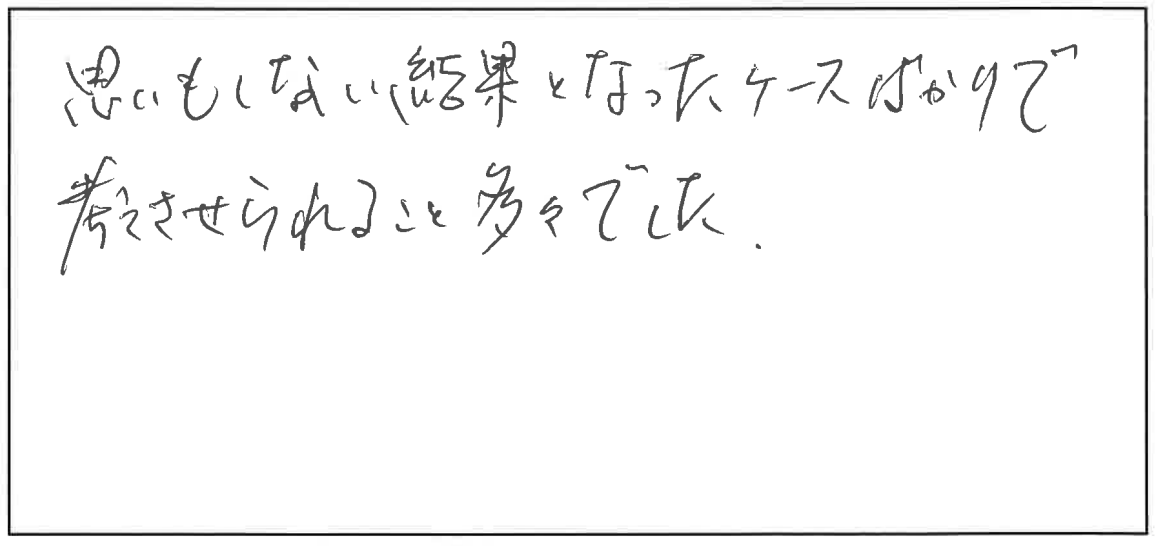 思いもしない結果となったケースばかりで
考えさせられること多々でした.